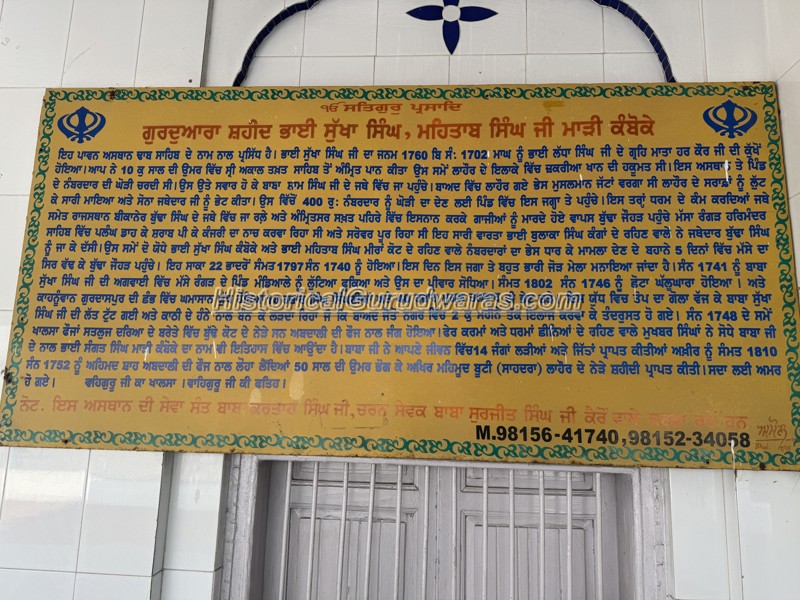 ੴ ਸਤਿਗੁਰ ਪ੍ਰਸਾਦਿ
ਗੁਰਦੁਆਰਾ ਸ਼ਹੀਦ ਭਾਈ ਸੁੱਖਾ ਸਿੰਘ, ਮਹਿਤਾਬ ਸਿੰਘ ਜੀ ਮਾੜੀ ਕੰਬੋਕੇ
ਇਹ ਪਾਵਨ ਅਸਥਾਨ ਚਾਬ ਸਾਹਿਬ ਦੇ ਨਾਮ ਨਾਲ ਪ੍ਰਸਿੱਧ ਹੈ। ਭਾਈ ਸੁੱਖਾ ਸਿੰਘ ਦਾ ਜਨਮ 1760 ਬਿ ਸੰ: 1702 ਮਾਘ ਨੂੰ ਭਾਈ ਲੱਧਾ ਸਿੰਘ ਦੇ ਗ੍ਰਹਿ ਮਾਤਾ ਹਰ ਕੌਰ ਜੀ ਦੀ ਕੁੱਖੋਂ
ਹੋਇਆ। ਆਪ ਨੇ 10 ਕੁ ਸਾਲ ਦੀ ਉਮਰ ਵਿੱਚ ਸ੍ਰੀ ਅਕਾਲ ਤਖ਼ਤ ਸਾਹਿਬ ਤੋਂ ਅੰਮ੍ਰਿਤ ਪਾਨ ਕੀਤਾ ਉਸ ਸਮੇਂ ਲਾਹੌਰ ਦੇ ਇਲਾਕੇ ਵਿੱਚ ਜ਼ਕਰੀਆ ਖਾਨ ਦੀ ਹਕੂਮਤ ਸੀ। ਇਸ ਅਸਥਾਨ ਤੇ ਪਿੰਡ
ਦੇ ਨੰਬਰਦਾਰ ਦੀ ਘੋੜੀ ਚਰਦੀ ਸੀ। ਉਸ ਉਤੇ ਸਵਾਰ ਹੋ ਕੇ ਬਾਬਾ ਸ਼ਾਮ ਸਿੰਘ ਜੀ ਦੇ ਜਥੇ ਵਿੱਚ ਜਾ ਪਹੁੰਚੇ। ਬਾਅਦ ਵਿੱਚ ਲਾਹੌਰ ਗਏ ਭੇਸ ਮੁਸਲਮਾਨ ਜੱਟਾਂ ਵਰਗਾ ਸੀ ਲਾਹੌਰ ਦੇ ਸਰਾਫ਼ਾਂ ਨੂੰ ਲੁੱਟ
ਕੇ ਸਾਰੀ ਮਾਇਆ ਅਤੇ ਸੋਨਾ ਜਥੇਦਾਰ ਜੀ ਨੂੰ ਭੇਟ ਕੀਤਾ। ਉਸ ਵਿੱਚੋਂ 400 ਰੁ: ਨੰਬਰਦਾਰ ਨੂੰ ਘੋੜੀ ਦਾ ਦੇਣ ਲਈ ਪਿੰਡ ਵਿੱਚ ਇਸ ਜਗ੍ਹਾ ਤੇ ਪਹੁੰਚੇ। ਇਸ ਤਰ੍ਹਾਂ ਧਰਮ ਦੇ ਕੰਮ ਕਰਦਿਆਂ ਜਥੇ
ਸਮੇਤ ਰਾਜਸਥਾਨ ਬੀਕਾਨੇਰ ਬੁੱਢਾ ਸਿੰਘ ਦੇ ਜਥੇ ਵਿੱਚ ਜਾ ਰਲੇ ਅਤੇ ਅੰਮ੍ਰਿਤਸਰ ਸਖ਼ਤ ਪਹਿਰੇ ਵਿੱਚ ਇਸਨਾਨ ਕਰਕੇ ਗਾਜੀਆਂ ਨੂੰ ਮਾਰਦੇ ਹੋਏ ਵਾਪਸ ਬੁੱਢਾ ਜੌਹੜ ਪਹੁੰਚੇ ਮੱਸਾ ਰੰਗੜ ਹਰਿਮੰਦਰ
ਸਾਹਿਬ ਵਿੱਚ ਪਲੰਘ ਡਾਹ ਕੇ ਸ਼ਰਾਬ ਪੀ ਕੇ ਕੰਜਰੀ ਦਾ ਨਾਚ ਕਰਵਾ ਰਿਹਾ ਸੀ ਅਤੇ ਸਰੋਵਰ ਪੂਰ ਰਿਹਾ ਸੀ। ਇਹ ਸਾਰੀ ਵਾਰਤਾ ਭਾਈ ਬੁਲਾਕਾ ਸਿੰਘ ਕੰਗਾਂ ਦੇ ਰਹਿਣ ਵਾਲੇ ਨੇ ਜਥੇਦਾਰ ਬੁੱਢਾ ਸਿੰਘ
ਨੂੰ ਜਾ ਕੇ ਦੱਸੀ। ਉਸ ਸਮੇਂ ਦੋ ਯੋਧੇ ਭਾਈ ਸੁੱਖਾ ਸਿੰਘ ਕੰਬੋਕੇ ਅਤੇ ਭਾਈ ਮਹਿਤਾਬ ਸਿੰਘ ਮੀਰਾਂ ਕੋਟ ਦੇ ਰਹਿਣ ਵਾਲੇ ਨੰਬਰਦਾਰਾਂ ਦਾ ਭੇਸ ਧਾਰ ਕੇ ਮਾਮਲਾ ਦੇਣ ਦੇ ਬਹਾਨੇ 5 ਦਿਨਾਂ ਵਿੱਚ ਮੱਸੇ ਦਾ
ਸਿਰ ਵੱਢ ਕੇ ਬੁੱਢਾ ਜੌਹੜ ਪਹੁੰਚੇ। ਇਹ ਸਾਕਾ 22 ਭਾਦਰੋਂ ਸੰਮਤ 1797 ਸੰਨ 1740 ਨੂੰ ਹੋਇਆ। ਇਸ ਦਿਨ ਇਸ ਜਗਾ ਤੇ ਬਹੁਤ ਭਾਰੀ ਜੋੜ ਮੇਲਾ ਮਨਾਇਆ ਜਾਂਦਾ ਹੈ। ਸੰਨ 1741 ਨੂੰ ਬਾਬਾ
ਸੁੱਖਾ ਸਿੰਘ ਦੀ ਅਗਵਾਈ ਵਿੱਚ ਮੱਸੇ ਰੰਗੜ ਦੇ ਪਿੰਡ ਮੰਡਿਆਲੇ ਨੂੰ ਲੁੱਟਿਆ ਗਿਆ ਅਤੇ ਉਸ ਦਾ ਪ੍ਰੀਵਾਰ ਸੋਧਿਆ। ਸੰਮਤ 1802 ਸੰਨ 1746 ਨੂੰ ਛੋਟਾ ਘੱਲੂਘਾਰਾ ਹੋਇਆ। ਅਤੇ
ਕਾਹਨੂੰਵਾਨ ਗੁਰਦਾਸਪੁਰ ਦੀ ਛੰਭ ਵਿੱਚ ਘਮਾਸਾਨ ਯੁੱਧ ਵਿੱਚ ਤੋਪ ਦਾ ਗੋਲਾ ਵੱਜ ਕੇ ਬਾਬਾ ਸੁੱਖਾ
HistoricalGurudwaras.com
ਸਿੰਘ ਜੀ ਦੀ ਲੱਤ ਟੁੱਟ ਗਈ ਅਤੇ ਕਾਠੀ ਦੇ ਹਾਂਨੇ ਨਾਲ ਬੰਨ ਕੇ ਲੜਦਾ ਰਿਹਾ ਸੀ ਕਿ ਬਾਅਦ ਜੈਤੋ ਨਗਰ ਵਿੱਚ ਮਹੀਨੇ ਤੱਕ ਇਲਾਜ ਕਰਵਾ ਕੇ ਤੰਦਰੁਸਤ ਹੋ ਗਏ। ਸੰਨ 1748 ਦੇ ਸਮੇਂ
ਖਾਲਸਾ ਫੌਜਾਂ ਸਤਲੁਜ ਦਰਿਆ ਦੇ ਬਰੇਤੇ ਵਿੱਚ ਬੁੱਢੇ ਕੋਟ ਦੇ ਨੇੜੇ ਸਨ ਅਬਦਾਲੀ ਦੀ ਫੌਜ ਨਾਲ ਜੰਗ ਹੋਇਆ। ਫੇਰ ਕਰਮਾਂ ਅਤੇ ਧਰਮਾਂ ਛੀਨਿਆਂ ਦੇ ਰਹਿਣ ਵਾਲੇ ਮੁਖਬਰ ਸਿੰਘਾਂ ਨੇ ਸੋਧੇ ਬਾਬਾ ਜੀ
ਦੇ ਨਾਲ ਭਾਈ ਸੰਗਤ ਸਿੰਘ ਮਾੜੀ ਕੰਬੋਕੇ ਦਾ ਨਾਮ ਵੀ ਇਤਿਹਾਸ ਵਿੱਚ ਆਉਂਦਾ ਹੈ। ਬਾਬਾ ਜੀ ਨੇ ਆਪਣੇ ਜੀਵਨ ਵਿੱਚ 14 ਜੰਗਾਂ ਲੜੀਆਂ ਅਤੇ ਜਿੱਤਾਂ ਪ੍ਰਾਪਤ ਕੀਤੀਆਂ ਅਖ਼ੀਰ ਨੂੰ ਸੰਮਤ 1810
ਸੰਨ 1752 ਨੂੰ ਅਹਿਮਦ ਸ਼ਾਹ ਅਬਦਾਲੀ ਦੀ ਫੌਜ ਨਾਲ ਲੋਹਾ ਲੈਂਦਿਆਂ 50 ਸਾਲ ਦੀ ਉਮਰ ਭੋਗ ਕੇ ਅਖਿਰ ਮਹਿਮੂਦ ਬੂਟੀ (ਸਾਹਦਰਾ) ਲਾਹੌਰ ਦੇ ਨੇੜੇ ਸ਼ਹੀਦੀ ਪ੍ਰਾਪਤ ਕੀਤੀ। ਸਦਾ ਲਈ ਅਮਰ
ਹੋ ਗਏ। ਵਹਿਗੁਰੂ ਜੀ ਕਾ ਖਾਲਸਾ। ਵਾਹਿਗੁਰੂ ਜੀ ਕੀ ਫਤਿਹ।
ਨੋਟ. ਇਸ ਅਸਥਾਨ ਦੀ ਸੇਵਾ ਸੰਤ ਬਾਬਾ ਕਰਤਾਰ ਸਿੰਘ ਜੀ, ਚਰਨ ਸੇਵਕ ਬਾਬਾ ਸੁਰਜੀਤ ਸਿੰਘ ਜੀ ਕੈਰੋਂ ਵਾਲੇ ਕਰਵਾ ਰਹੇ ਹਨ
M.98156-41740,98152-34058